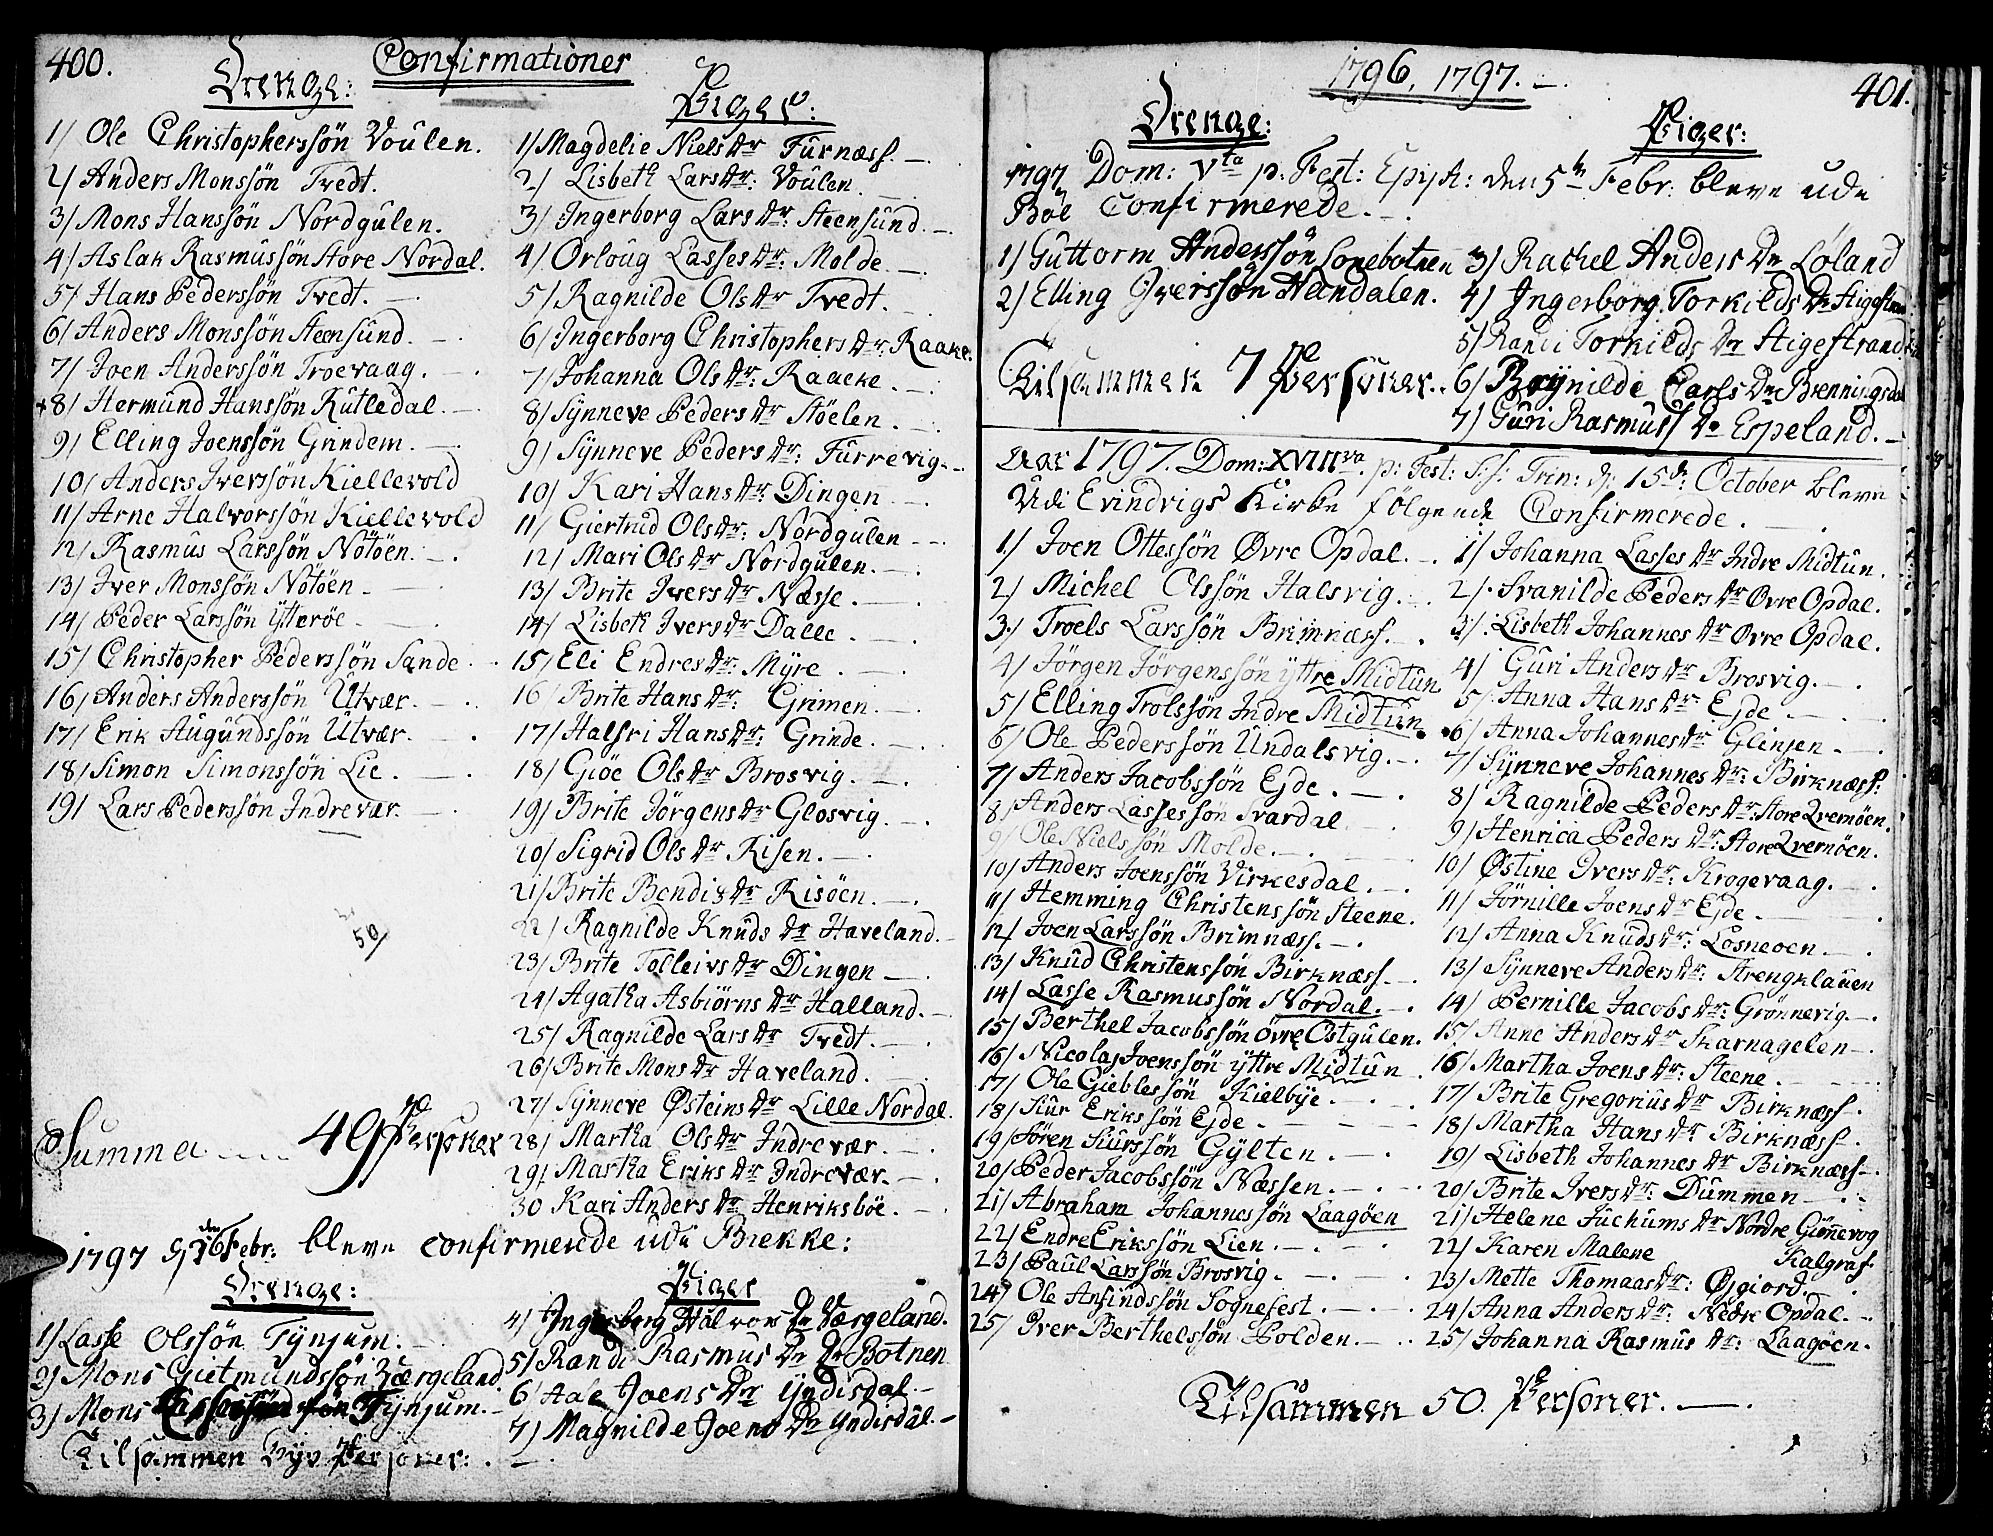 400.
Confirmationer
Drenge:
1/ Ole Christopherssön Voulen.
2/ Anders Monssön Tvedt.
3/ Mons Hanssön Nordgulen.
4/ Aslak Rasmussön Store Nordal.
5/ Hans Pederssön Tvedt. —
6/ Anders Monssön Steensund. —
7/ Joen Anderssön Troevaag. —
+8/ Hermund Hanssön Rutledal. —
9/ Elling Joenssön Grindem. —
10/ Anders Iverssön Kiellevold
11/ Arne Halvorssön Kiellevold
12/ Rasmus Larssön Nötöen. —
13/ Iver Monssön Nötöen. —
14/ Peder Larssön Ytteröe —
15/ Christopher Pederssön Sande.
16/ Anders Anderssön Utvær. —
17/ Erik Augundssön Utvær. —
18/ Simon Simonssön Lie. —
19/ Lars Pederssön Indrevær. —
50/
Summa 49 Personer
Piger:
1/ Magdelie Niels Dr Furnæss. —
2/ Lisbeth Lars Dr: Voulen. —
3/ Ingerborg Lars Dr: Steensund. —
4/ Orloug Lasses Dr: Molde. —
5/ Ragnilde Ols Dr Tvedt. —
6/ Ingerborg Christophers Dr: Raake.
7/ Johanna Ols Dr: Raacke. —
8/ Synneve Peders Dr Stöelen. —
9/ Synneve Peders Dr: Furrevig. —
10/ Kari Hans Dr: Dingen. —
11/ Giertrud Ols Dr: Nordgulen —
12/ Mari Ols Dr Nordgulen. —
13/ Brite Ivers Dr Næsse. —
14/ Lisbeth Ivers Dr Dalle. —
15/ Eli Endres Dr: Myre. —
16/ Brite Hans Dr: Grimen. —
17/ Halfri Hans Dr: Grinde. —
18/ Giöe Ols Dr Brosvig. —
19/ Brite Jörgens Dr Glosvig. —
20/ Sigrid Ols Dr Risen. —
21/ Brite Bendis Dr Risöen. —
22/ Ragnilde Knuds Dr Haveland. —
23/ Brite Tolleivs Dr Dingen —
24/ Agatha Asbiörns Dr Halland. —
25/ Ragnilde Lars Dr Tvedt. —
26/ Brite Mons Dr Haveland. —
27/ Synneve Østeins Dr Lille Nordal.
28/ Martha Ols Dr Indrevær. —
29/ Martha Eriks Dr Indrevær. —
30 Kari Anders Dr Henriksböe. —
1797 den Febr: bleve confirmerede udi Brekke:
Drenge:
1/ Lasse Olssön Tynjum.
2/ Mons Gietmundssön Værgeland.
3/ Mons Tynjum. —
Tilsammen Syv Personer:
Piger
4/ Ingerborg Halvors Dr Værgeland.
5/ Randi Rasmus Dr Botnen
6/ Aae Joens Dr Yndisdal. —
7/ Magnilde Joens Dr Yndisdal. —
1796, 1797. —
401.
Drenge:
Piger:
1797 Dom: Vta p. Fest: Epiph: den 5te Febr: bleve udi
Böe Confirmerede. —
1/ Guttorm Anderssön Sonebotnen
2/ Elling Iverssön Heendalen.
Tilsammen 7 Personer.
3/ Rachel Anders Dr Löland
4/ Ingerborg Torkilds Dr Stigestrand
5/ Randi Torkilds Dr Stigestrand
6/ Ragnilde Carls Dr Brenningsdal
7/ Guri Rasmuss Dr Espeland. —
Aar 1797. Dom: XVIIIva. p: Fest: S.S. Trin: d: 15de: October bleve
Udi Evindvigs Kirke følgende Confirmerede. —
1/ Joen Ottessön Øvre Opdal. —
2/ Michel Olssön Halsvig. —
3/ Troels Larssön Brimnæss. —
4/ Jörgen Jörgenssön yttre Midtun
5/ Elling Trolssön Indre Midtun.
6/ Ole Pederssön Undalsvig. —
7/ Anders Jacobssön Ejde. —
8/ Anders Lassessön Svardal —
9/ Ole Nielssön Molde. —
10/ Anders Joenssön Virkesdal. —
11/ Hemming Christenssön Steene.
12/ Joen Larssön Brimnæss. —
13/ Knud Christenssön Birknæss. —
14/ Lasse Rasmussön Nordal. —
15/ Berthel Jacobssön övre Östgulen.
16/ Nicolaj Joenssön yttre Midtun
17/ Ole Gieblessön Kielbye. —
18/ Siur Erikssön Ejde —
19/ Sören Siurssön Gylten. —
20/ Peder Jacobssön Næssen. —
21/ Abraham Johannessön Laagöen
22/ Endre Erikssön Lien. —
23/ Paul Larssön Brosvig. —
24/ Ole Anfindssön Sognefest. —
25/ Iver Berthelssön Polden. —
1/ Johanna Lasses Dr Indre Midtun.
2/ Svanilde Peders Dr Øvre Opdal.
3/ Lisbeth Johannes Dr Øvre Opdal.
4/ Guri Anders Dr Brosvig. —
5/ Anna Hans Dr: Ejde —
6/ Anna Johannes Dr Glinjen —
7/ Synneve Johannes Dr: Birknæss.
8/ Ragnilde Peders Dr: Store Qvernöen.
9/ Henrica Peders Dr: Store Qvernöen.
10/ Østine Ivers Dr: Krogevaag. —
11/ Jörnille Joens Dr Ejde —
12/ Anna Knuds Dr: Losneoen —
13/ Synneve Anders Dr: Strengklauen
14/ Pernille Jacobs Dr: Grönnevig. —
15/ Anne Anders Dr Skarnagelen —
16/ Martha Joens Dr: Steene. —
17/ Brite Gregorius Dr Birknæss.
18/ Martha Hans Dr Birknæss.
19/ Lisbeth Johannes Dr Birknæss. —
20/ Brite Ivers Dr: Dummen —
21/ Helene Juchums Dr Nordre Gönnevog
22/ Karen Malene Kalgraf.
23/ Mette Thomaas Dr: Øjgiord. —
24/ Anna Anders Dr: Nedre Opdal. —
25/ Johanna Rasmus Dr: Laagöen.
Tilsammen 50. Personer. —